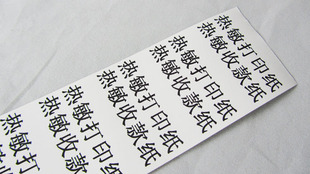 热敏打印纸
热敏收款纸
热敏打印纸
热敏收款纸
热敏打印纸
热敏收款纸
热敏打印纸
热敏收款纸
热敏打